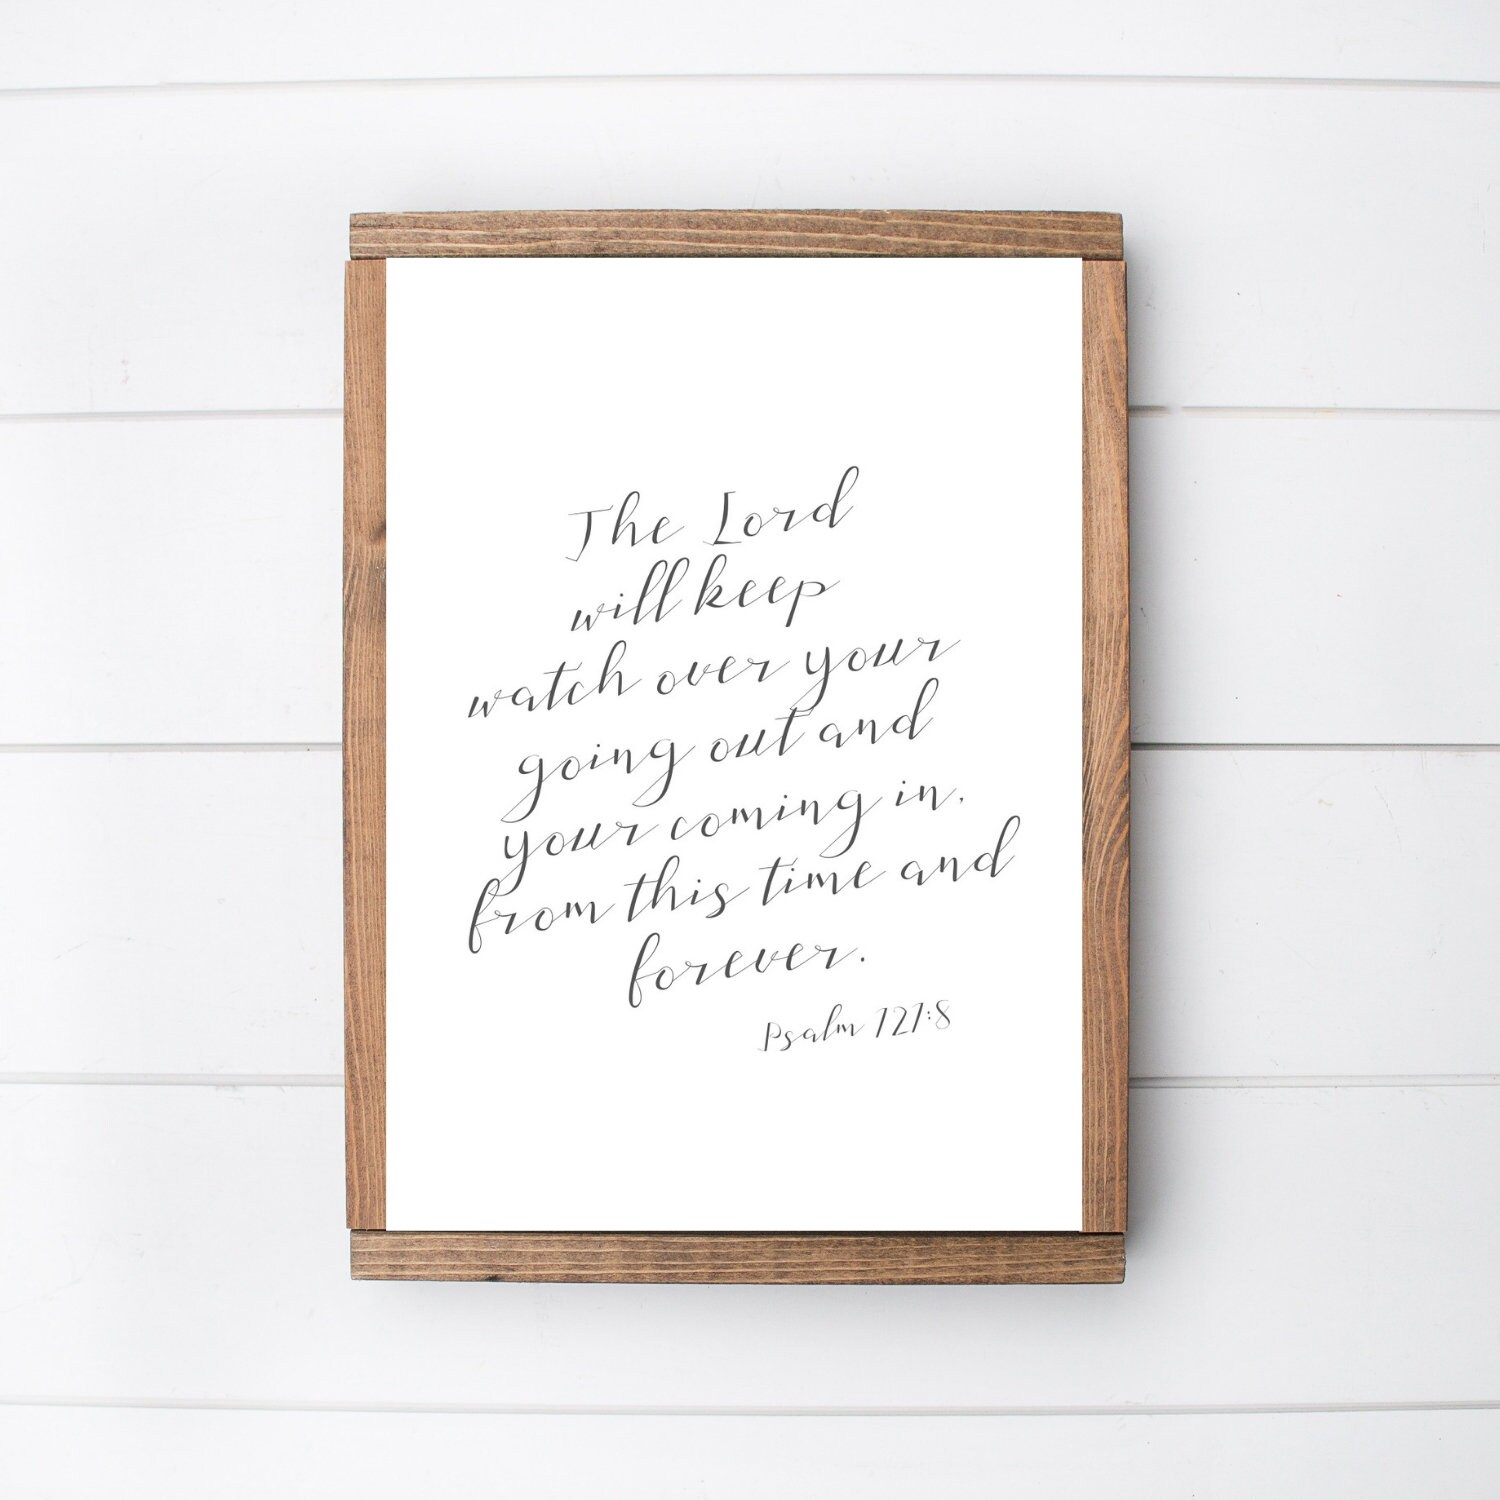 The Lord
will keep
watch over your
going out and
your coming in,
from this time and
forever.
Psalm 121:8